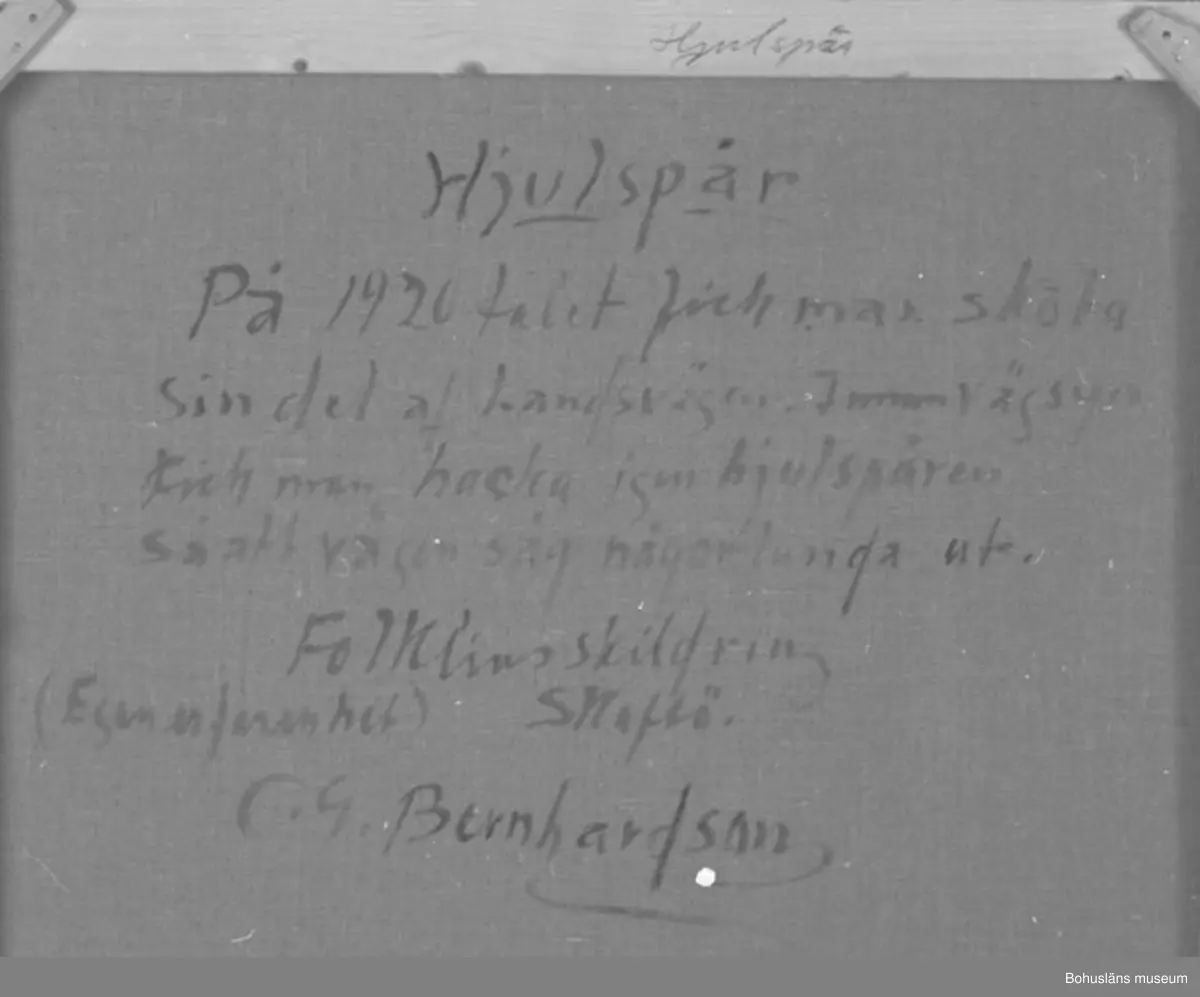 Hjulspår
Hjulspår
På 1920 talet fick man sköta
sin del af Landsvägen. I vägsyn
fick man hacka igen hjulspåren
så att vägen såg någorlunda ut.
Folklivsskildring
(Egen erfarenhet) Skaftö.
C.G. Bernhardson
Bohusläns museum